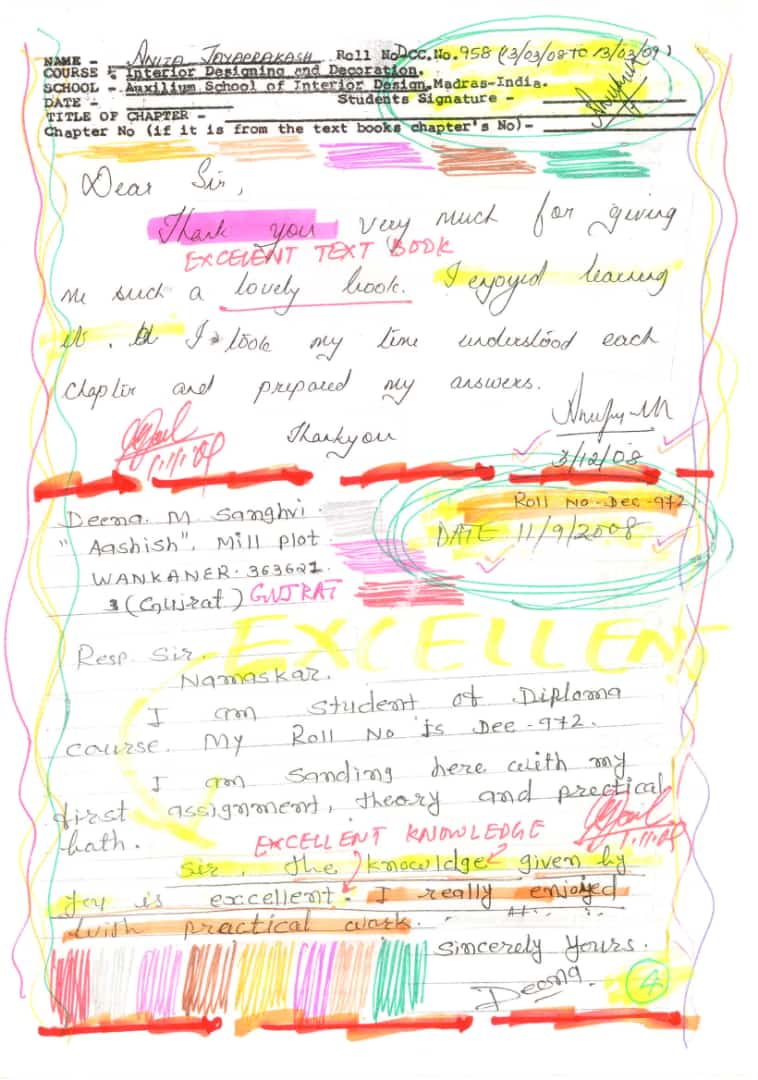 NAME - ANITA JAYAPRAKASH Roll No Dcc. No. 958 (13/03/08 TO 13/03/09)
COURSE : Interior Designing and Decoration.
SCHOOL - Auxilium School of Interior Design, Madras-India.
DATE - Students Signature -
TITLE OF CHAPTER -
Chapter No (if it is from the text books chapter's No)-
Dear Sir,
Thank you very much for giving
EXCELENT TEXT BOOK
me such a lovely book. I enjoyed learning
it. I took my time understood each
chapter and prepared my answers.
Thankyou
1.11.08
3/12/08
Roll No - Dec - 972
Deena. M. Sanghvi.
DATE 11/9/2008
"Aashish". Mill plot
WANKANER - 363621
(Gujrat) GUJRAT
EXCELLENT
Resp. Sir.
Namaskar.
I am student of Diploma
course. My Roll No is Dec - 972.
I am sanding here with my
first assignment, theory and practical
bath.
1.11.08
EXCELLENT KNOWLEDGE
Sir, the knowldge given by
you is excellent. I really enjoyed
with practical work.
Sincerely Yours.
Deena.
4